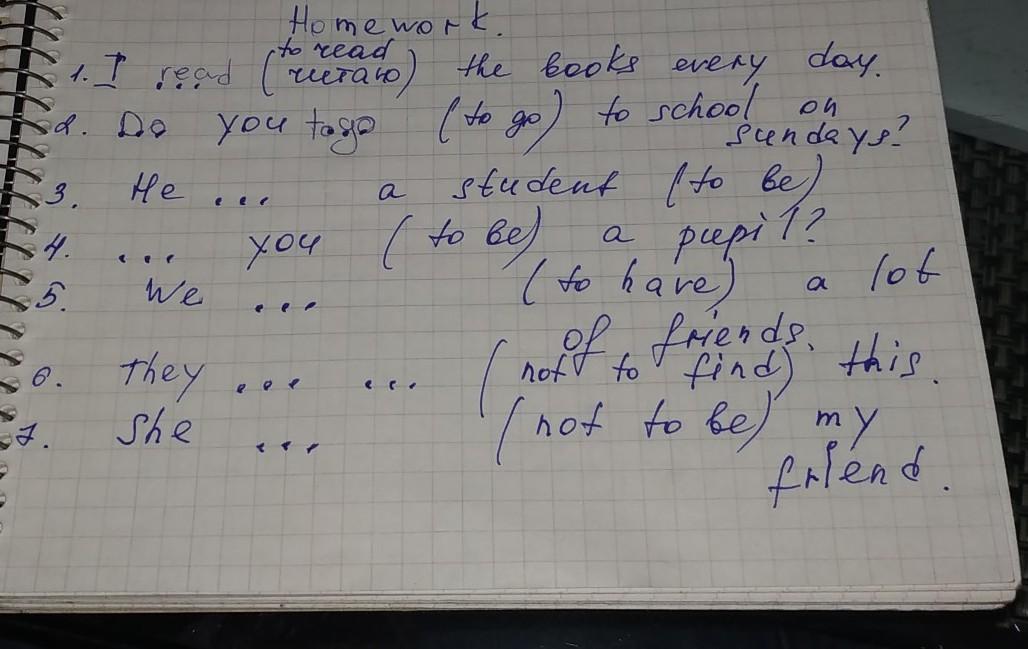 Homework.
to read
1. I read (читаю) the books every day.
2. Do you to go (to go) to school on
sundays?
3. He ... a student (to be)
4. ... you (to be) a pupil?
5. We ... (to have) a lot
of friends.
6. they ... ... (not to find) this.
7. She ... (not to be) my
friend.